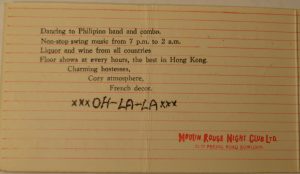 Dancing to Philipino band and combo.
Non-stop swing music from 7 p.m. to 2 a.m.
Liquor and wine from all countries
Floor shows at every hours, the best in Hong Kong.
Charming hostesses,
Cozy atmosphere,
French decor.
xxxOH-LA-LAxxx
MOULIN ROUGE NIGHT CLUB LTD.
ROAD KOWLOON